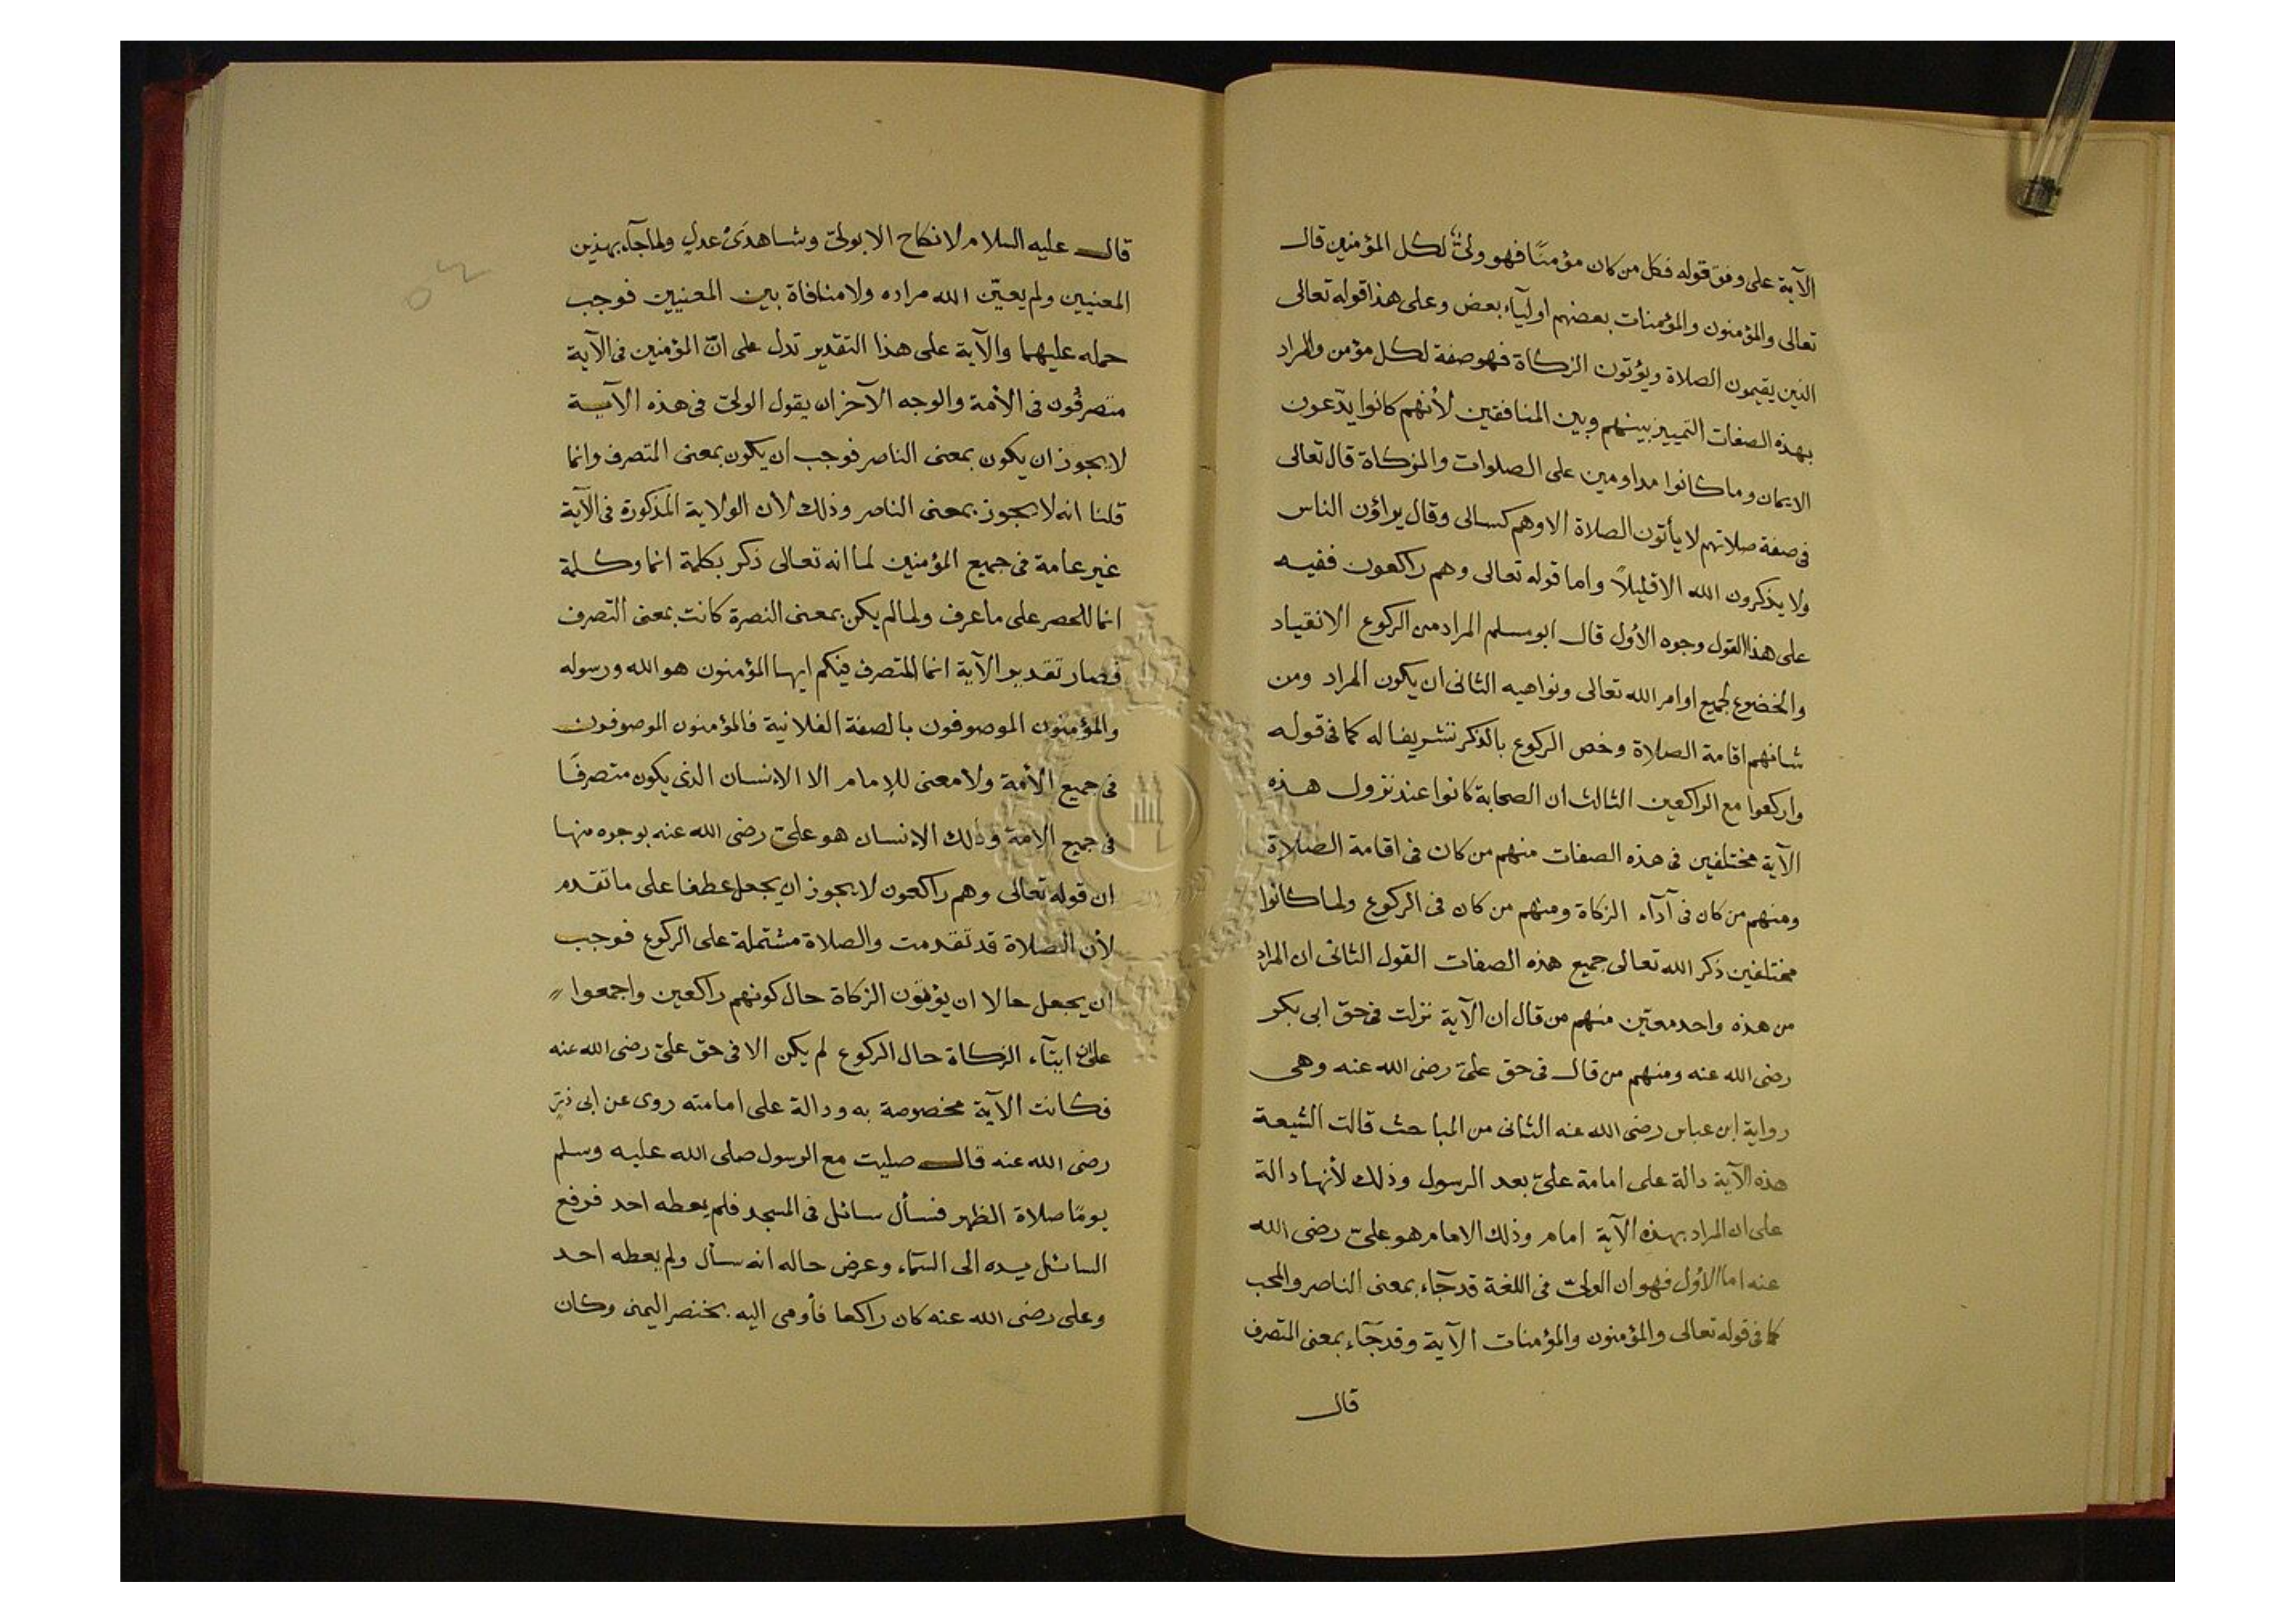 الآية على وفق قوله فكل من كان مؤمنًا فهو ولىّ لكل المؤمنين قال
تعالى والمؤمنون والمؤمنات بعضهم اوليآء بعض وعلى هذا قوله تعالى
الذين يقيمون الصلاة ويؤتون الزكاة فهو صفة لكل مؤمن والمراد
بهذه الصفات التمييز بينهم وبين المنافقين لأنهم كانوا يدّعون
الايمان وما كانوا مداومين على الصلوات والزكاة قال تعالى
فى صفة صلاتهم لا يأتون الصلاة الا وهم كسالى وقال يراؤن الناس
ولا يذكرون الله الا قليلاً واما قوله تعالى وهم راكعون ففيه
على هذا القول وجوه الأول قال ابو مسلم المراد من الركوع الانقياد
والخضوع لجميع اوامر الله تعالى ونواهيه الثانى ان يكون المراد ومن
شانهم اقامة الصلاة وخص الركوع بالذكر تشريفا له كما فى قوله
واركعوا مع الراكعين الثالث ان الصحابة كانوا عند نزول هذه
الآية مختلفين فى هذه الصفات منهم من كان فى اقامة الصلاة
ومنهم من كان فى آدآء الزكاة ومنهم من كان فى الركوع ولما كانوا
مختلفين ذكر الله تعالى جميع هذه الصفات القول الثانى ان المراد
من هذه واحد معيّن منهم من قال ان الآية نزلت فى حق ابى بكر
رضى الله عنه ومنهم من قال فى حق علىّ رضى الله عنه وهى
رواية ابن عباس رضى الله عنه الثانى من المباحث قالت الشيعة
هذه الآية دالة على امامة علىّ بعد الرسول وذلك لأنها دالة
على ان المراد بهذه الآية امام وذلك الامام هو علىّ رضى الله
عنه اما الأول فهو ان الولىّ فى اللغة قد جآء بمعنى الناصر والمحب
كما فى قوله تعالى والمؤمنون والمؤمنات الآية وقد جآء بمعنى المتصرف
قال
قال عليه السلام لا نكاح الا بولىّ وشاهدىْ عدل ولما جآء بهذين
المعنيين ولم يعيّن الله مراده ولا منافاة بين المعنيين فوجب
حمله عليهما والآية على هذا التقدير تدل على انّ المؤمنين فى الآية
متصرفون فى الأمة والوجه الآخر ان يقول الولىّ فى هذه الآية
لا يجوز ان يكون بمعنى الناصر فوجب ان يكون بمعنى المتصرف وانما
قلنا انه لا يجوز بمعنى الناصر وذلك لأن الولاية المذكورة فى الآية
غير عامة فى جميع المؤمنين لما انه تعالى ذكر بكلمة انما وكلمة
انما للحصر على ما عرف ولما لم يكن بمعنى النصرة كانت بمعنى التصرف
فصار تقدير الآية انما المتصرف فيكم ايها المؤمنون هو الله ورسوله
والمؤمنون الموصوفون بالصفة الفلانية فالمؤمنون الموصوفون
فى جميع الأمة ولا معنى للإمام الا الانسان الذى يكون متصرفًا
فى جميع الامة وذلك الإنسان هو علىّ رضى الله عنه بوجوه منها
ان قوله تعالى وهم راكعون لا يجوز ان يجعل عطفا على ما تقدم
لأن الصلاة قد تقدمت والصلاة مشتملة على الركوع فوجب
ان يجعل حالا ان يؤتون الزكاة حال كونهم راكعين واجمعوا
على ان ايتآء الزكاة حال الركوع لم يكن الا فى حق علىّ رضى الله عنه
فكانت الآية مخصوصة به ودالة على امامته روى عن ابى ذرّ
رضى الله عنه قال صليت مع الرسول صلى الله عليه وسلم
يومًا صلاة الظهر فسأل سائل فى المسجد فلم يعطه احد فرفع
السائل يده الى السمآء وعرض حاله انه سأل ولم يعطه احد
وعلى رضى الله عنه كان راكعا فأومى اليه بخنصر اليمنى وكان